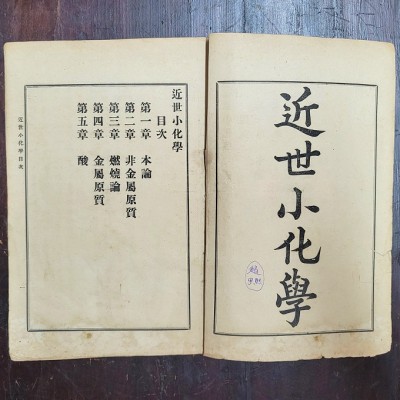 近世小化學
近世小化學
目次
第一章 本論
第二章 非金屬原質
第三章 燃燒論
第四章 金屬原質
第五章 酸
近世小化學目次